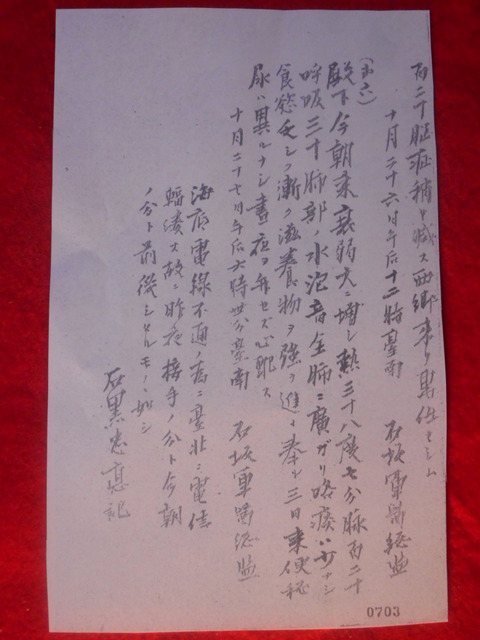 百二十脳症稍々減ス西郷来リ異仕セシム
十月二十六日午后十二時臺南 石坂軍醫総監
(第六)
殿下今朝来衰弱大ニ増シ熱三十八度七分脉百二十
呼吸三十肺部ノ水泡音全肺ニ廣ガリ咯痰ハ少ナシ
食慾乏シク漸ク滋養物ヲ強ク進メ奉ル三日来便秘
尿ハ異ルナシ晝夜ヲ弁セズ心配ス
十月二十七日午后六時廿分臺南 石坂軍醫総監
海底電線不通ノ為ニ臺北ニ電信
輻湊ス故ニ昨夜接手ノ分ト今朝
ノ分ト前後シタルモノヽ如シ
石黒忠悳記
0703